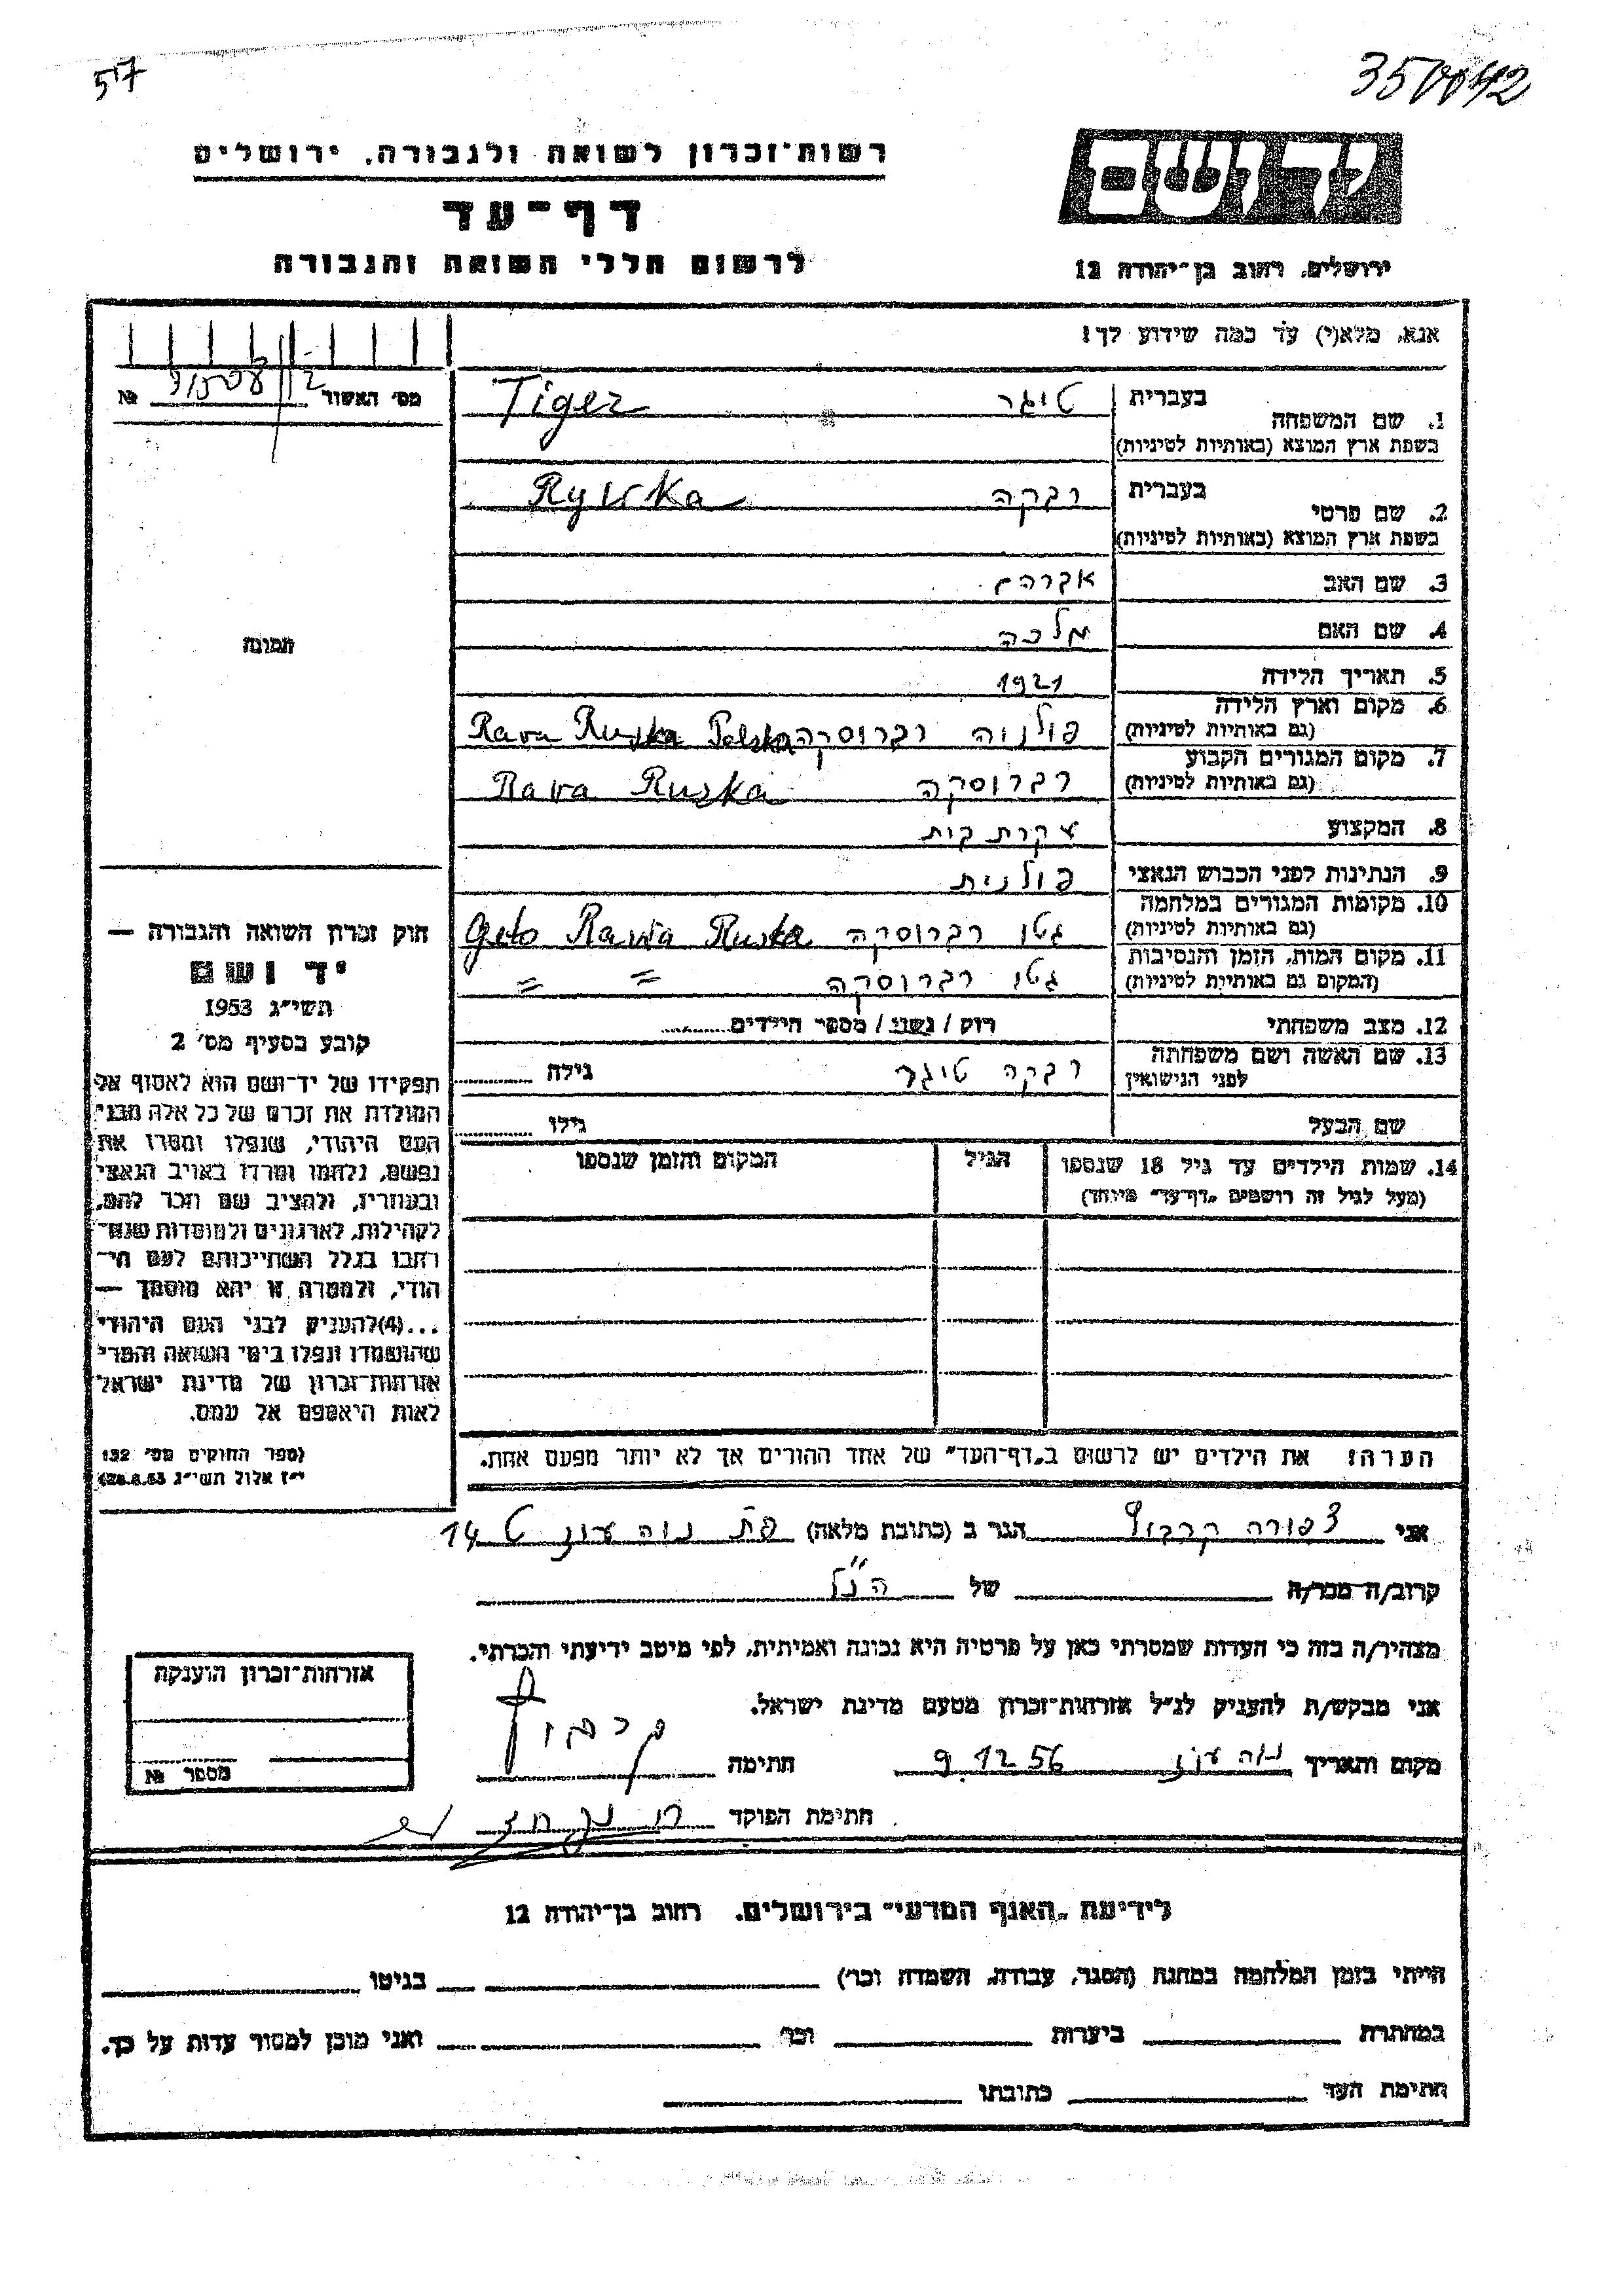 517
רשות־זכרון לשואה ולגבורה, ירושלים
דף־עד
לרשום חללי השואה והגבורה
יד ושם
ירושלים, רחוב בן־יהודה 12
אנא, מלא(י) עד כמה שידוע לך!
מס' האשור №
בעברית טיגר Tiger
1. שם המשפחה
בשפת ארץ המוצא (באותיות לטיניות)
בעברית רבקה Rywka
2. שם פרטי
בשפת ארץ המוצא (באותיות לטיניות)
3. שם האב אברהם
4. שם האם מלכה
5. תאריך הלידה 1921
6. מקום וארץ הלידה
(גם באותיות לטיניות) פולניה רברוסקה Rava Ruska Polska
7. מקום המגורים הקבוע
(גם באותיות לטיניות) רברוסקה Rawa Ruska
8. המקצוע עקרת בית
9. הנתינות לפני הכבוש הנאצי פולנית
10. מקומות המגורים במלחמה
(גם באותיות לטיניות) גטו רברוסקה Geto Rawa Ruska
11. מקום המות, הזמן והנסיבות
(המקום גם באותיות לטיניות) גטו רברוסקה = =
12. מצב משפחתי רוק / נשוי / מספר הילדים
13. שם האשה ושם משפחתה
לפני הנישואין רבקה טיגר גילה
שם הבעל גילו
14. שמות הילדים עד גיל 18 שנספו הגיל המקום והזמן שנספו
(מעל לגיל זה רושמים "דף־עד" מיוחד)
הערה: את הילדים יש לרשום ב"דף־העד" של אחד ההורים אך לא יותר מפעם אחת.
תמונה
חוק זכרון השואה והגבורה —
יד ושם
תשי"ג 1953
קובע בסעיף מס' 2
תפקידו של יד־ושם הוא לאסוף אל
המולדת את זכרם של כל אלה מבני
העם היהודי, שנפלו ומסרו את
נפשם, נלחמו ומרדו באויב הנאצי
ובעוזריו, ולהציב שם וזכר להם,
לקהילות, לארגונים ולמוסדות שנח־
רבו בגלל השתייכותם לעם הי־
הודי, ולמטרה זו יהא מוסמך —
...(4) להעניק לבני העם היהודי
שהושמדו ונפלו בימי השואה והמרי
אזרחות־זכרון של מדינת ישראל
לאות היאספם אל עמם.
(ספר החוקים מס' 132
י"ז אלול תשי"ג 28.8.53)
אני צפורה קרבוף הגר ב (כתובת מלאה) פת נוה עוז ט 14
קרוב/ה מכר/ה של הנ"ל
מצהיר/ה בזה כי העדות שמסרתי כאן על פרטיה היא נכונה ואמיתית, לפי מיטב ידיעתי והכרתי.
אני מבקש/ת להעניק לנ"ל אזרחות־זכרון מטעם מדינת ישראל.
מקום ותאריך נוה עוז 9.12.56 חתימה
חתימת הפוקד
אזרחות־זכרון הוענקה
מספר №
לידיעת "האגף המדעי" בירושלים, רחוב בן־יהודה 12
הייתי בזמן המלחמה במחנה (הסגר, עבודה, השמדה וכו') בגיטו
במחתרת ביערות וכו' ואני מוכן למסור עדות על כך.
חתימת העד כתובתו